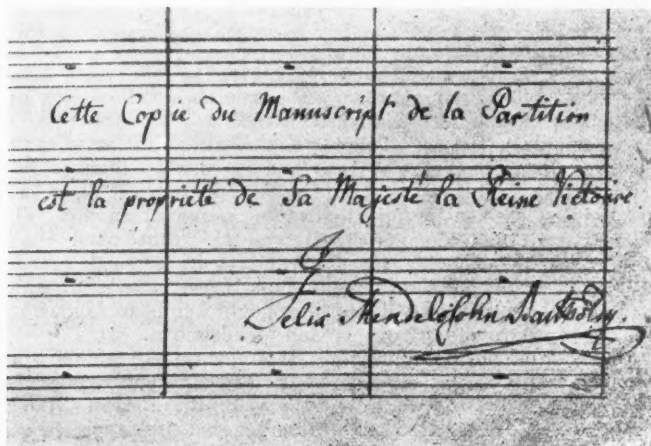 Cette Copie du Manuscript de la Partition
est la propriété de Sa Majesté la Reine Victoire.
Felix Mendelssohn Bartholdy.